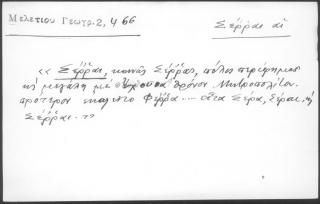 Μελετίου Γεωγρ. 2, 466
Σέρραι αἱ
« Σέρραι, κοινῶς Σέρρας, πόλις περίφημος
καὶ μεγάλη μὲ θρόνον Μητροπολίτου.
πρότερον ἐκαλεῖτο Φέρρα ... εἶτα Σέρα, Σέραι, ἢ
Σέρραι. »